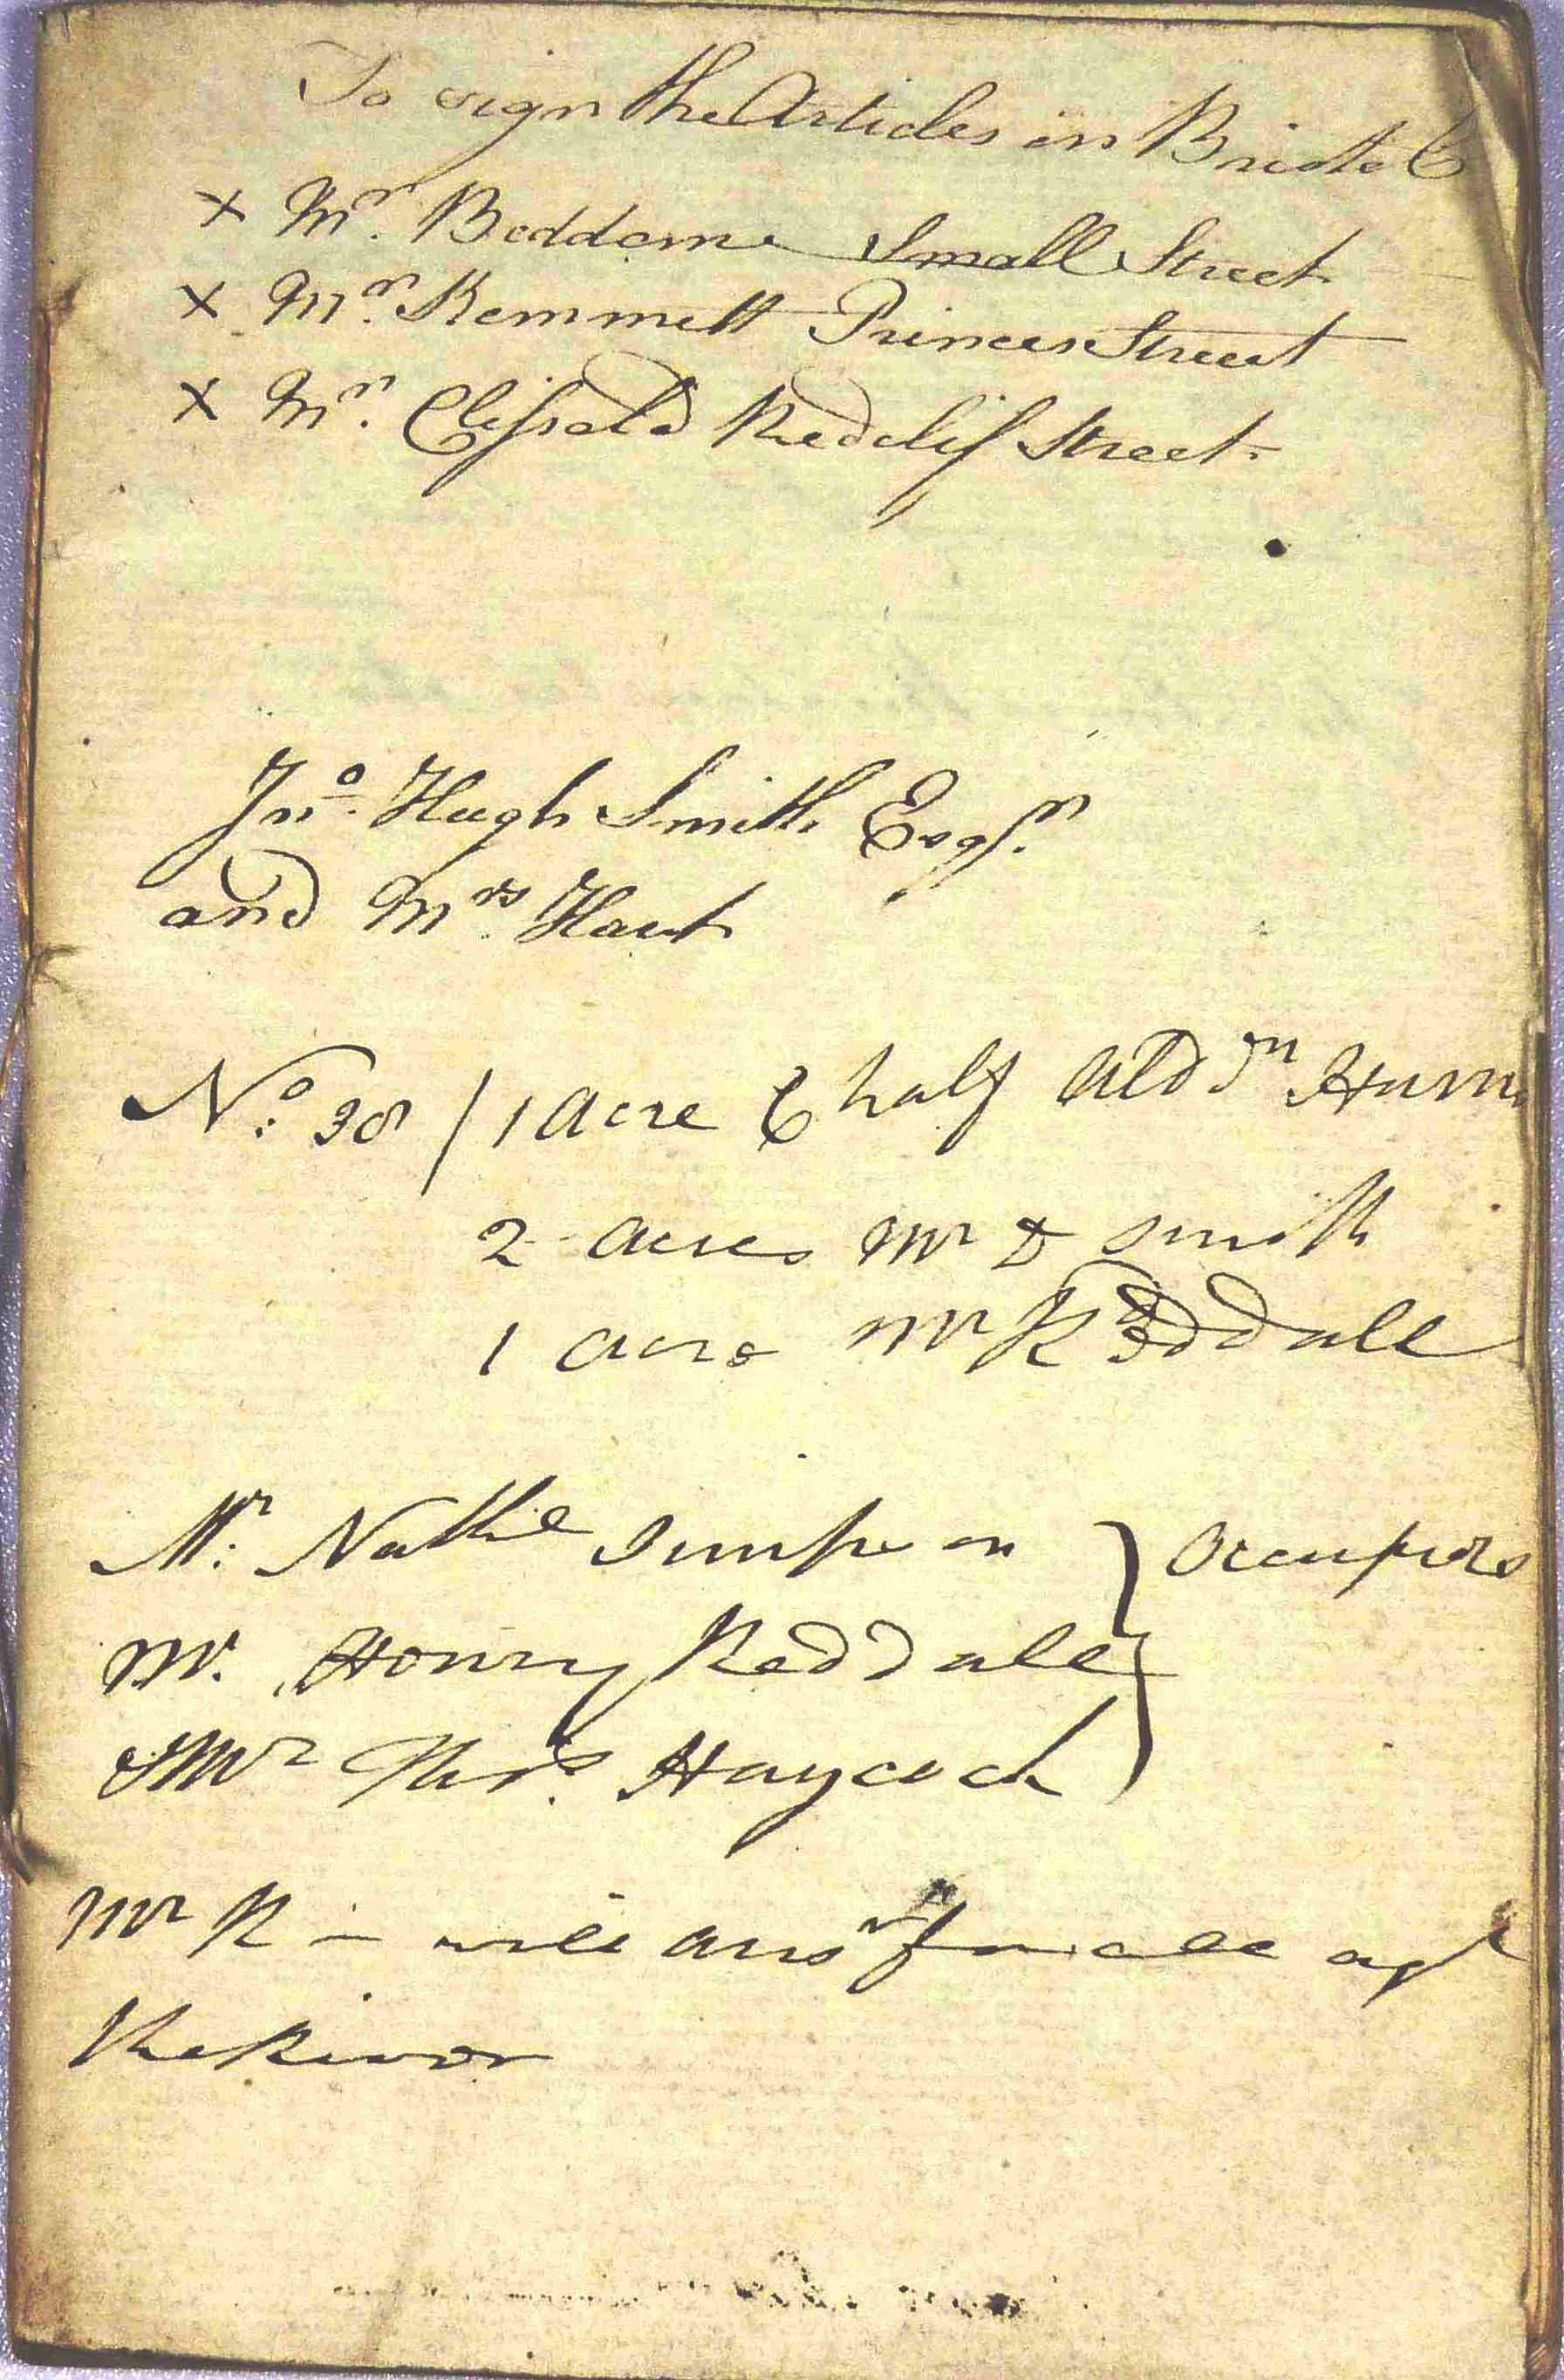 To sign the Articles in Bristol
x Mr. Beddome Small Street
x Mr. Kemmett Princes Street
x Mr. Clissold Redclif Street
Jno. Hugh Smith Esqr.
and Mrs. Hart
No. 38 / 1 acre & half Aldrn
2 acres Mr smith
1 acre Mr Reddall
Mr. Nathl Simpson } Occupiers
Mr. Henry Reddall
Mr Thos. Haycock
Mr R -
the River